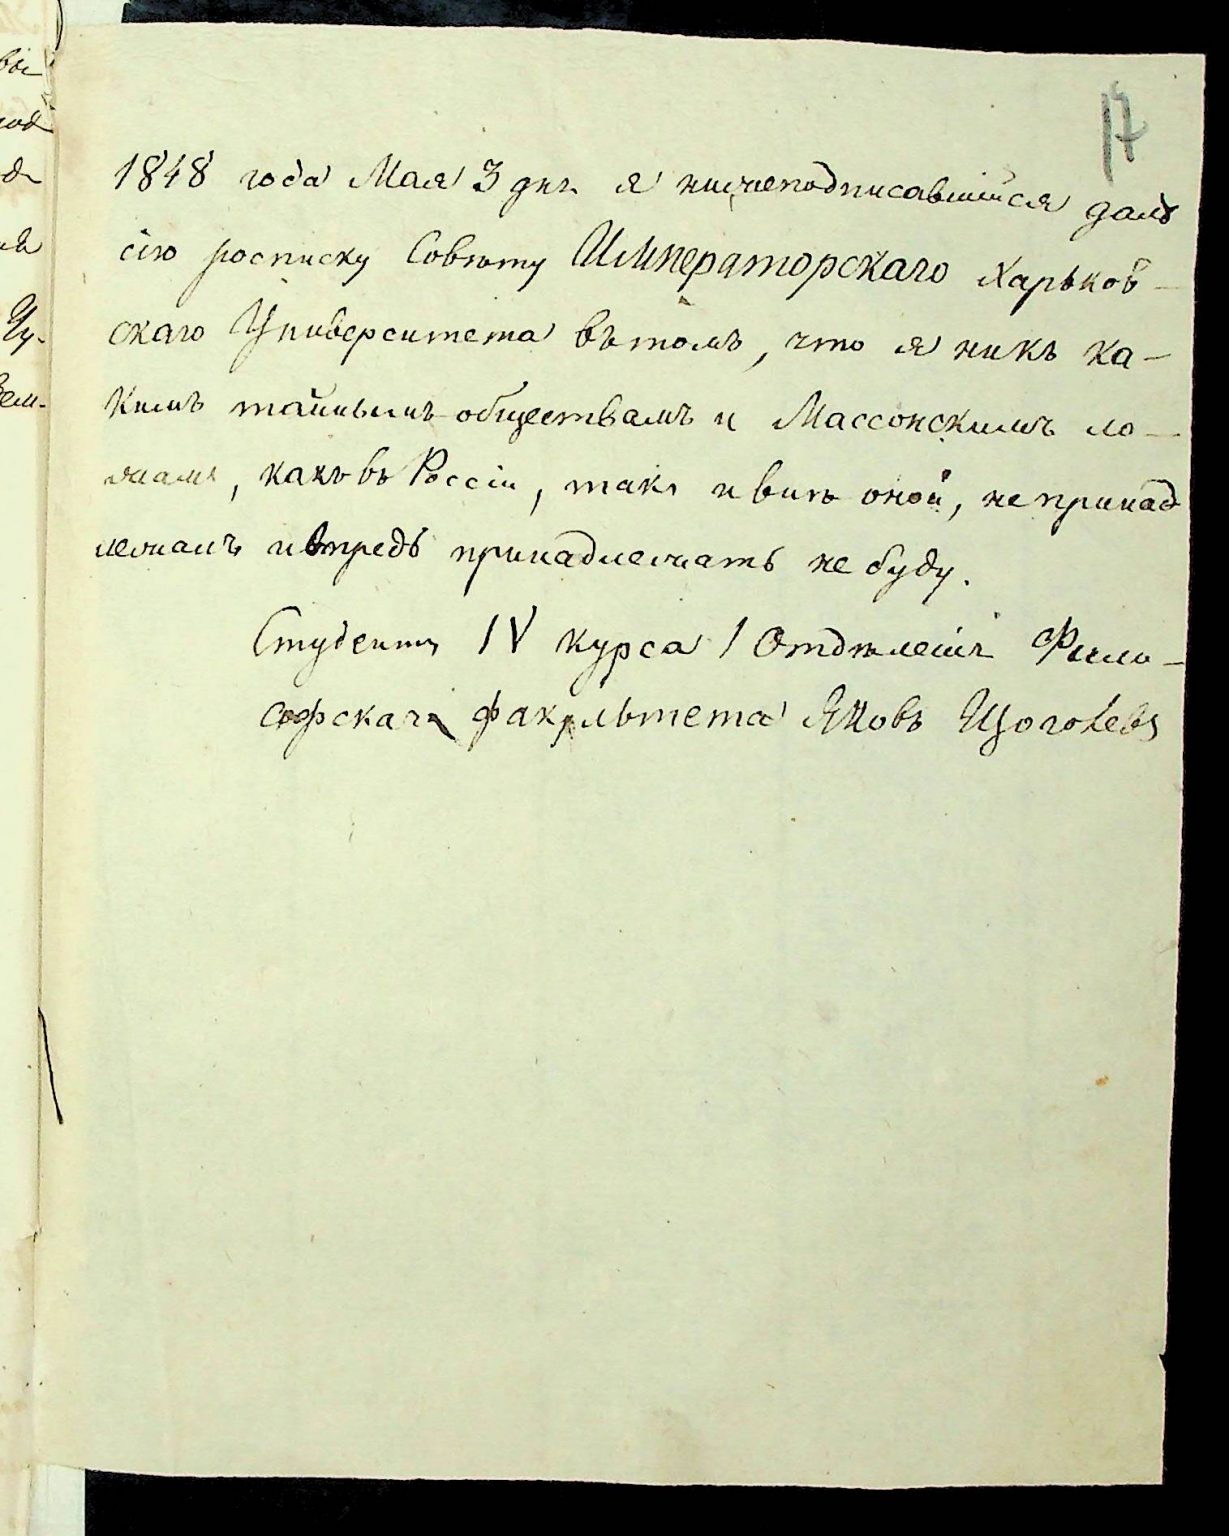 17
1848 года Мая 3 дня я нижеподписавшійся далъ
сію росписку Совѣту Императорскаго Харьков-
скаго Университета въ томъ, что я никъ ка-
кимъ тайнымъ обществамъ и Массонскимъ ло-
жамъ, какъ въ Россіи, такъ и внѣ оной, не принад
лежалъ и впредь принадлежать не буду.
Студентъ IV курса 1 Отдѣленія Фило-
софскаго факультета Яковъ Щоголевъ